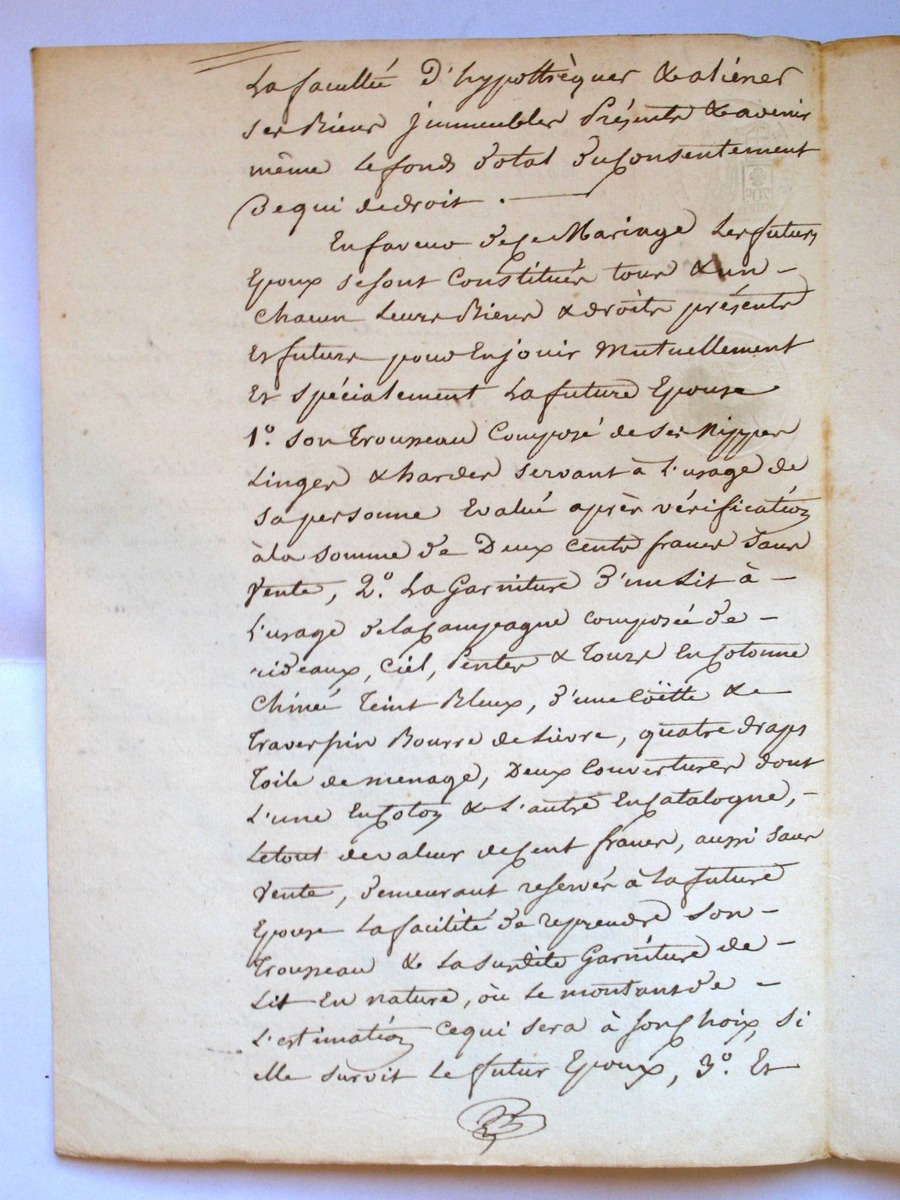 La facultée D'hypothèquer & aliéner
ses Biens jmmeubles Présents & avenir
même le fonds dotal du Consentement
De qui de droit .
En faveur de ce Mariage Les futurs
Epoux se sont Constitués tous & un
chacun Leurs Biens & droits présents
Et futurs pour En jouir Mutuellement
Et spécialement La future Epouse
1.º son Trousseau Composé de ses Nippes
Linges & hardes servant à L'usage de
sa personne Evalué après vérification
à la somme de Deux cents francs sans
Vente, 2.º La Garniture d'un Lit à
L'usage de la Campagne composée de
rideaux, Ciel, Pentes & Tours En Cotonne
Chinée Teint Bleux, d'une Coëtte & de
Traverssin Bourre de Lievre, quatre draps
Toile de menage, Deux Couvertures dont
L'une En Coton & L'autre En Catalogne,
Le tout de valeur de Cent francs, aussi sans
Vente, demeurant reservés à La future
Epouse La facilité de reprendre son
Trousseau & La susdite Garniture de
Lit En nature, où Le montant de
L'estimation ce qui sera à son Choix, si
elle survit Le futur Epoux, 3.º Et